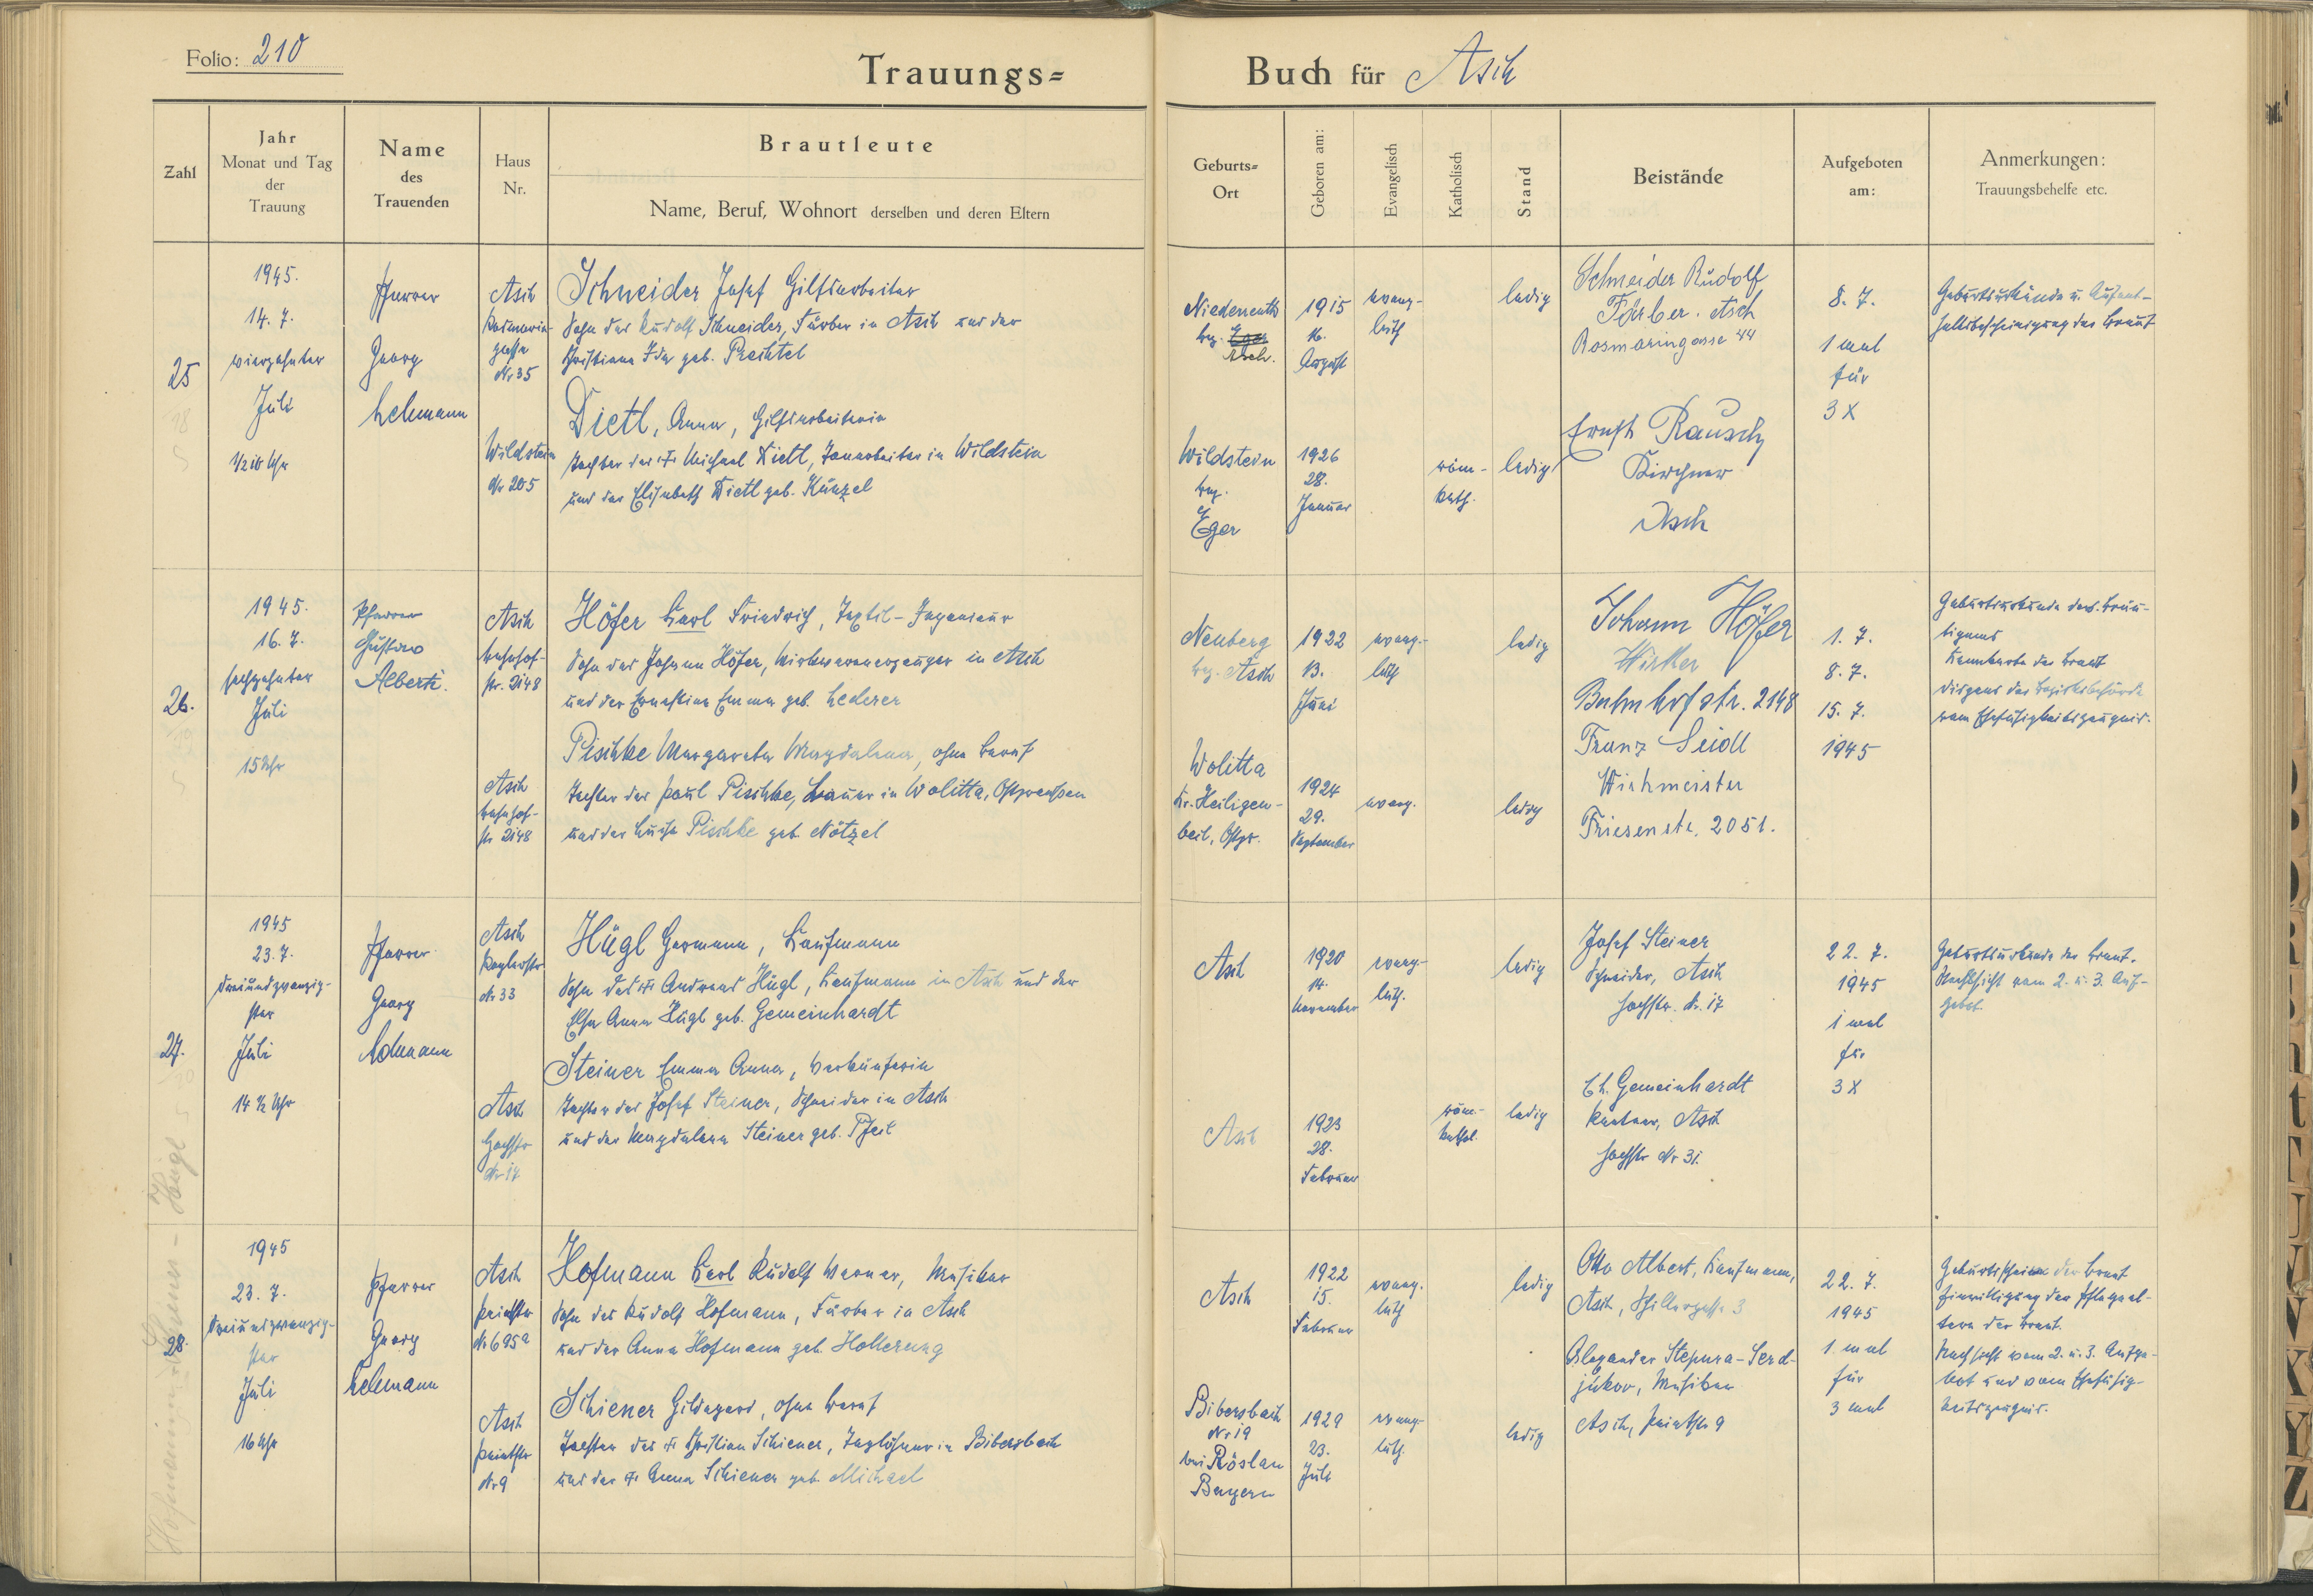 Folio: 210
Trauungs=
Buch für Asch
Zahl
Jahr
Monat und Tag
der
Trauung
Name
des
Trauenden
Haus
Nr.
Brautleute
Name, Beruf, Wohnort derselben und deren Eltern
Geburts=
Ort
Geboren am:
Evangelisch
Katholisch
Stand
Beistände
Aufgeboten
am:
Anmerkungen:
Trauungsbehelfe etc.
25
1945.
14. 7.
vierzehnter
Juli
1/2 10 Uhr
Pfarrer
Georg
Lehmann
Asch
Rosmarin-
gasse
Nr 35
Schneider Josef Hilfsarbeiter
Sohn des Rudolf Schneider, Färber in Asch und der
Christiane Ida geb. Prechtel
Wildstein
Nr 205
Dietl, Anna, Hilfsarbeiterin
Tochter des † Michael Dietl, Tonarbeiter in Wildstein
und der Elisabeth Dietl geb. Künzel
Niederreuth
bez. Eger
Asch.
1915
16.
August
evang-
luth
ledig
Wildstein
bez.
Eger
1926
28.
Januar
röm-
kath.
ledig
Schneider Rudolf
Färber. Asch
Rosmaringasse 44
Ernst Rausch
Kirchner
Asch
8. 7.
1 mal
für
3 x
Geburtsurkunde u. Aufent-
haltsbescheinigung der Braut
26.
1945.
16. 7.
sechzehnter
Juli
15 Uhr
Pfarrer
Gustav
Alberti.
Asch
Bahnhof-
str. 2148
Höfer Karl Friedrich, Textil-Ingenieur
Sohn des Johann Höfer, Wirkwarenerzeuger in Asch
und der Ernestine Emma geb. Lederer
Asch
Bahnhof-
str 2148
Pischke Margareta Magdalena, ohne Beruf
Tochter des Paul Pischke, Bauer in Wolitta, Ostpreußen
und der Luise Pischke geb. Nötzel
Neuberg
bez. Asch
1922
13.
Juni
evang.-
luth
ledig
Wolitta
Kr. Heiligen-
beil, Ostpr.
1924
29.
September
evang.
ledig
Johann Höfer
Wirker
Bahnhofstr. 2148
Franz Seidl
Wirkmeister
Friesenstr. 2051.
1. 7.
8. 7.
15. 7.
1945
Geburtsurkunde des Bräu-
tigams
Kennkarte der Braut
Dispens der Bezirksbehörde
vom Ehefähigkeitszeugnis.
27.
1945
23. 7.
dreiundzwanzig-
ster
Juli
14 1/2 Uhr
Pfarrer
Georg
Lehmann
Asch
Nr 33
Hügl Hermann, Kaufmann
Sohn des † Andreas Hügl, Kaufmann in Asch und der
Elsa Anna Hügl geb. Gemeinhardt
Asch
Hochstr
Nr 17
Steiner Emma Anna, Verkäuferin
Tochter des Josef Steiner, Schneider in Asch
und der Magdalena Steiner geb. Pfeil
Asch
1920
14.
November
evang-
luth.
ledig
Asch
1923
28.
Februar
röm.-
kathol.
ledig
Josef Steiner
Schneider, Asch
Hochstr. Nr. 17
Ch. Gemeinhardt
Rentner, Asch
Hochstr Nr 31.
22. 7.
1945
1 mal
für
3 x
Geburtsurkunde der Braut.
Nachsicht vom 2. u. 3. Auf-
gebot.
28.
1945
23. 7.
dreiundzwanzig-
ster
Juli
16 Uhr
Pfarrer
Georg
Lehmann
Asch
Nr 695a
Hofmann Karl Rudolf Werner, Musiker
Sohn des Rudolf Hofmann, Färber in Asch
und der Anna Hofmann geb. Hollerung
Asch
Nr 9
Schiener Hildegard, ohne Beruf
Tochter des † Christian Schiener, Taglöhner in Bibersbach
und der † Anna Schiener geb. Michael
Asch
1922
15.
Februar
evang.
luth
ledig
Bibersbach
Nr 19
bei Röslau
Bayern
1929
23.
Juli
evang-
luth.
ledig
Otto Albert, Kaufmann,
Asch, Schillergasse 3
Alexander Stepura-Serd-
jukov, Musiker
Asch,
22. 7.
1945
1 mal
für
3 mal
Geburtsschein der Braut
Einwilligung der Pflegeel-
tern der Braut.
Nachsicht vom 2. u. 3. Aufge-
bot und vom Ehefähig-
keitszeugnis.